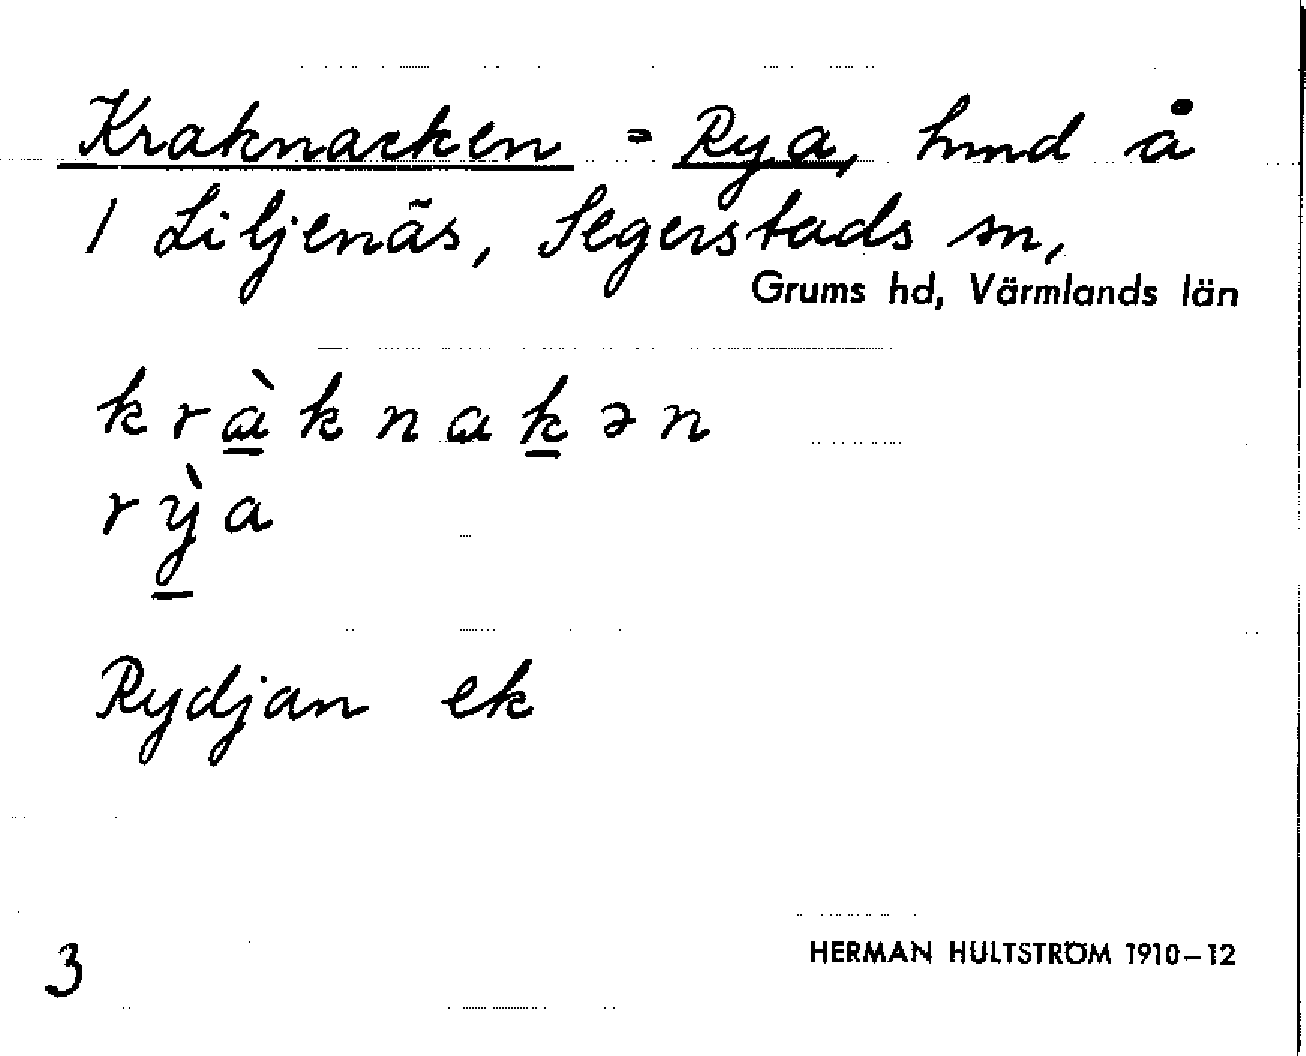 Kraknacken = Rya, hmd å
1 Liljenäs, Segerstads sn,
Grums hd, Värmlands län
kràknakən
rỳa
Rydjan ek
3
HERMAN HULTSTRÖM 1910-12